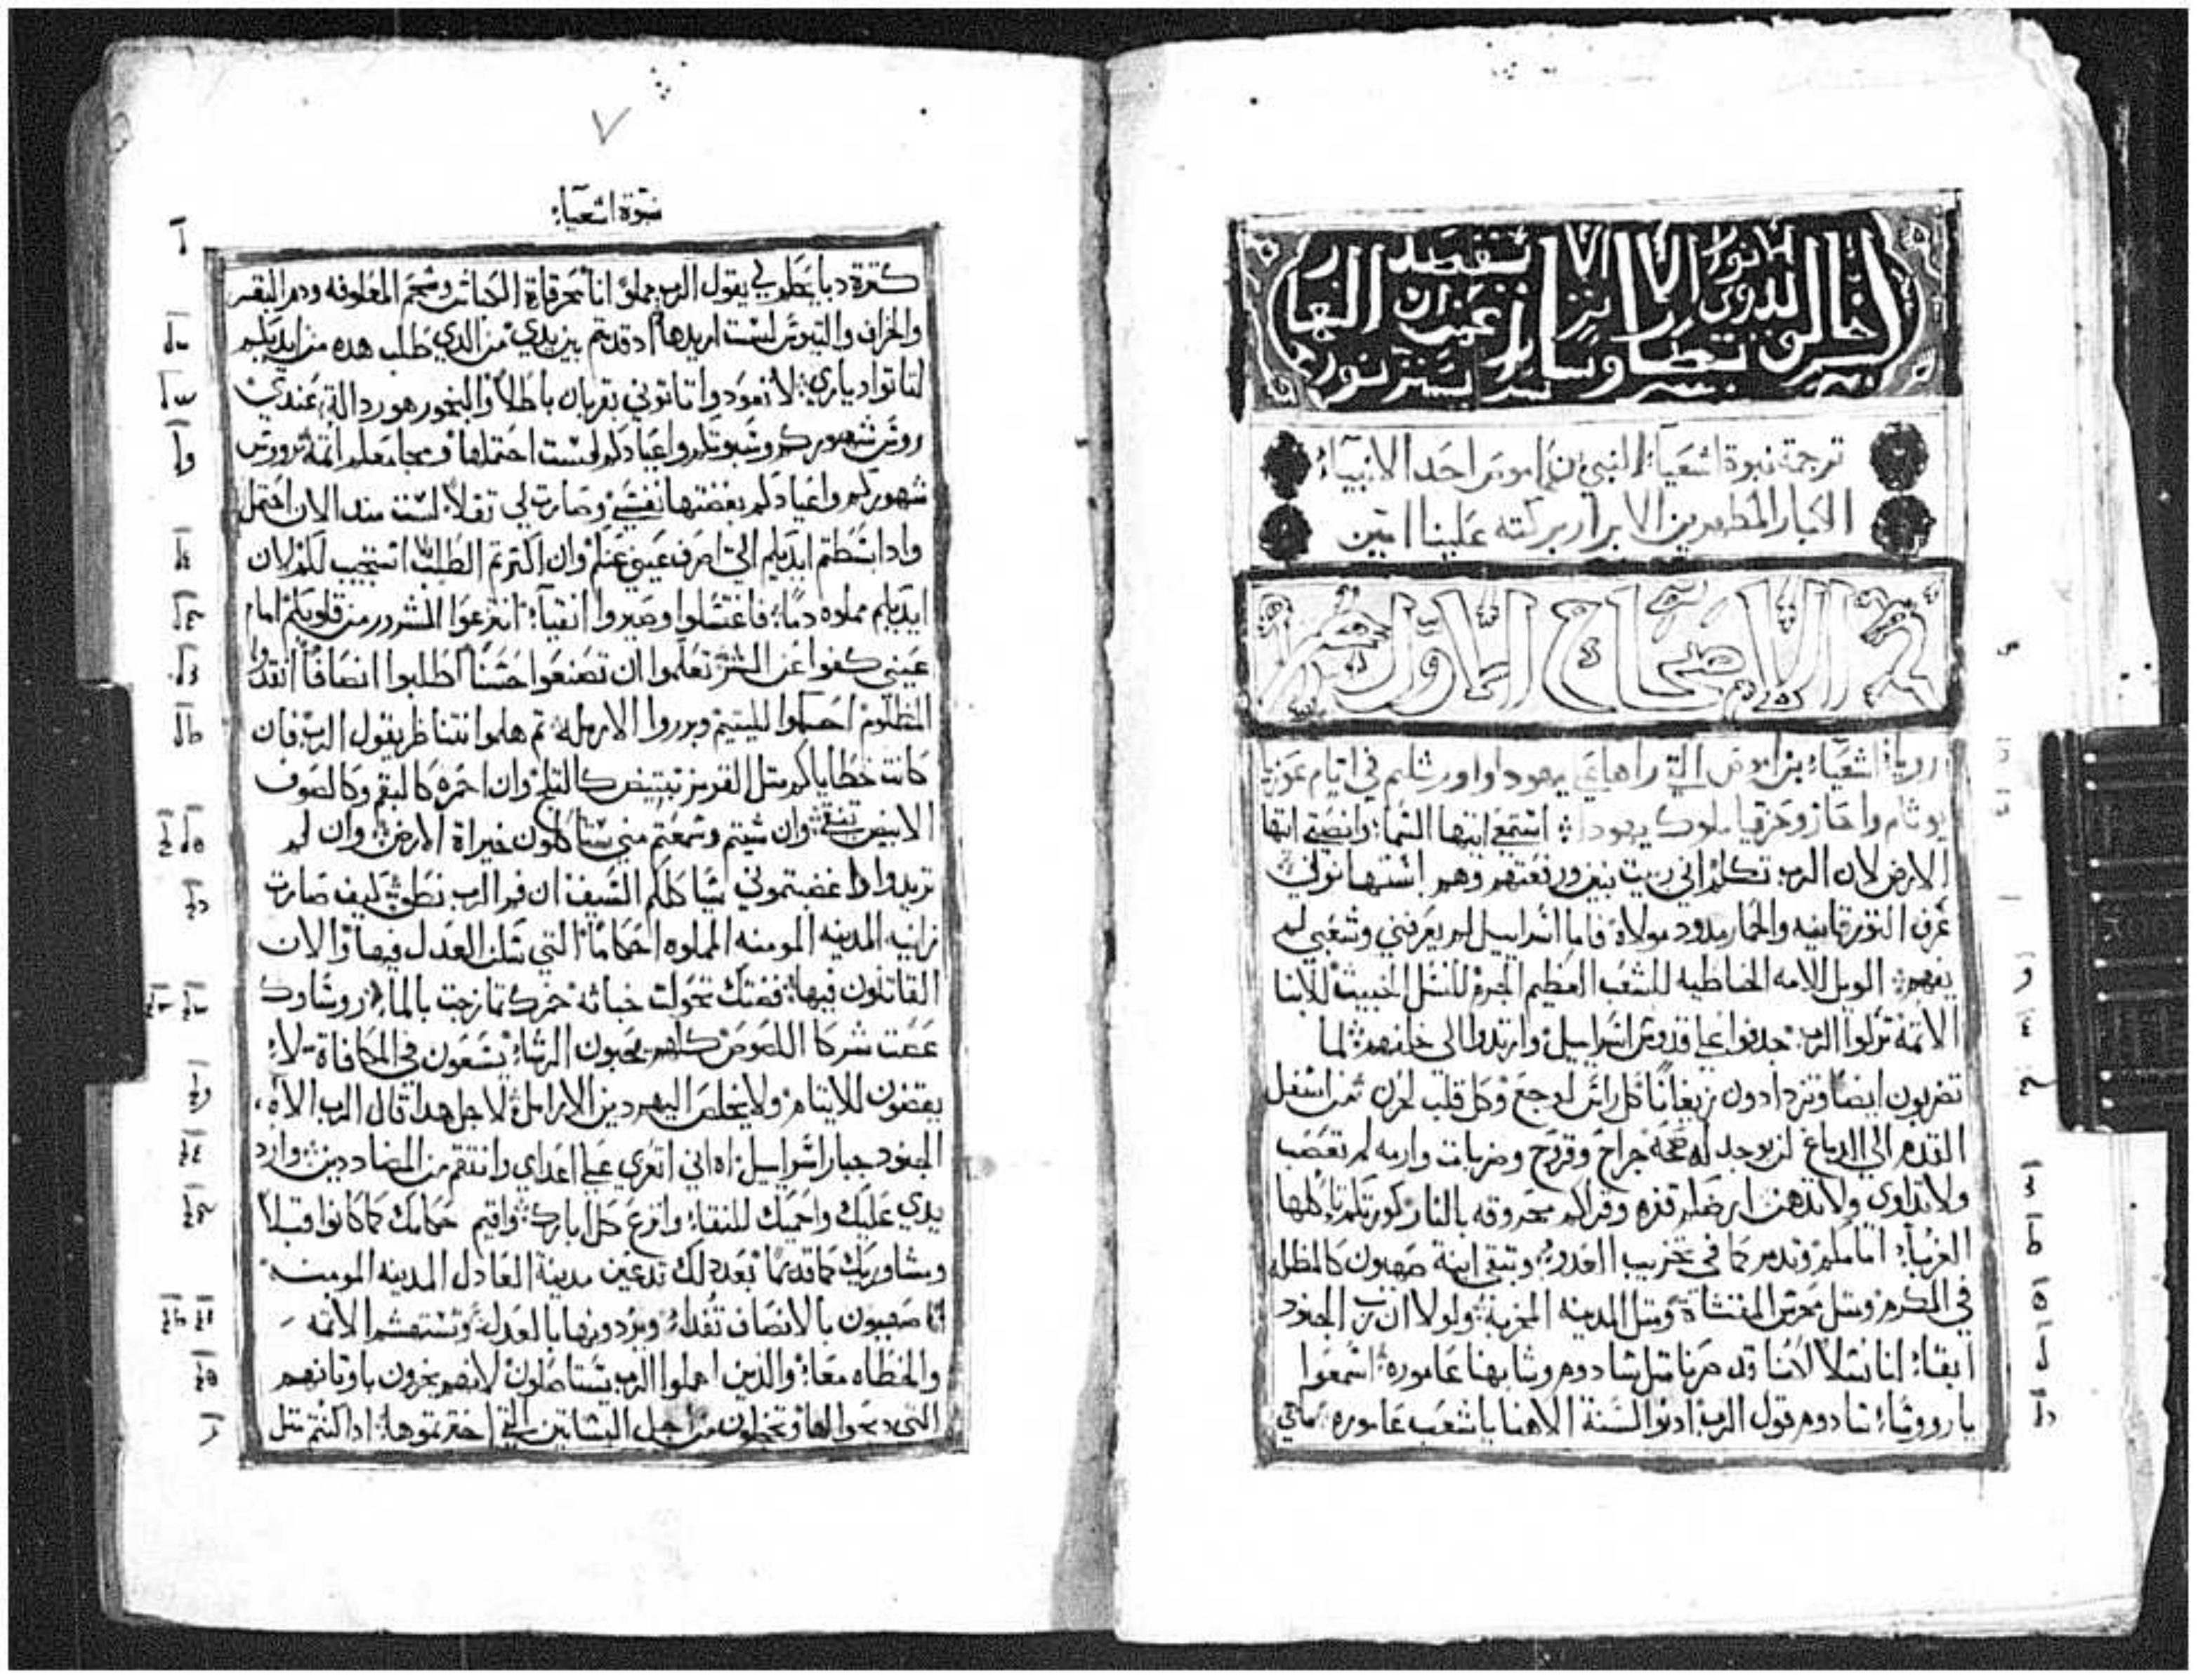 ترجمة نبوة اشعياء النبي بن اموص احد الانبياء
الكبار المطهرين الابرار بركته علينا امين
الاصحاح الاول
رويا اشعياء بن اموص التي راها على يهودا واورشليم في ايام عوزيا
يوثام واحاز وحزقيا ملوك يهودا استمعي ايتها السما وانصتي ايتها
الارض لان الرب تكلم اني ربيت بنين ورفعتهم وهم اشتهانوني
عرف الثور قانيه والحمار مدود مولاه فاما اسراييل لم يعرفني وشعبي لم
يفهم الويل للامه الخاطيه للشعب العظيم الجرم للنسل الخبيث للابنا
الاثمة تركوا الرب جدفوا على قدوس اسراييل وارتدوا الى خلفهم لما
تضربون ايضا وتزدادون زيغانا كل راس لوجع وكل قلب لحزن من اسفل
القدم الى الدماغ لن يوجد له صحة جراح وقروح وضربات وارمه لم تعصب
ولا تداوى ولا تدهن ارضكم قفره وقراكم محروقه بالنار كورتكم ياكلها
الغربآء امامكم وتدمر كما في تخريب العدو وتبقى ابنة صهيون كالمظله
في الكرم ومثل محرس المقتشاة ومثل المدينه المخربة ولولا ان رب الجنود
ابقا لنا نسلا لكنا قد صرنا مثل سادوم وشابهنا عاموره اسمعوا
يا رووساء سادوم قول الرب ادنوا السنة الاهنا يا شعب عاموره ماهي
٧
نبوة اشعياء
كثرة دبايحكم لي يقول الرب مملو انا محرقاة الكباش وشحم المعلوفه ودم البقر
والخراف والتيوس لست اريدها اد قدمتم بين يدي من الدي طلب هده من ايديكم
لتاتوا دياري لا تعودوا تاتوني بقربان باطلا والبخور هو ردالة عندي
روس شهوركم وسبوتكم واعيادكم لست احتملها ومجامعكم اثمة روس
شهوركم واعيادكم بغضتها نفسي وصارت لي ثقلا لست مند الان احتمل
وادا بسطتم ايديكم الي اصرف عيني عنكم وان اكثرتم الطلب استجيب لكم لان
ايديكم مملوه دما فاغتسلوا وصيروا انقيآء انزعوا الشرور من قلوبكم امام
عيني كفوا عن الشر تعلموا ان تصنعوا حسنا اطلبوا انصافا انقدوا
المظلوم احكموا لليتيم وبرروا الارمله ثم هلموا نتناظر يقول الرب فان
كانت خطاياكم مثل القرمز تبيض كالثلج وان احمره كالبقم وكالصوف
الابيض تنقى وان شيتم وسمعتم مني ستاكلون خيراة الارض وان لم
تريدوا واغضبتموني سياكلكم السيف ان فم الرب نطق كيف صارت
زانيه المدينه المومنه المملوه احكاما التي سكن العدل فيها والان
القاتلون فيها فضتك تحولت خباثه خمرك تمازجت بالماء روساوك
عصت شركا اللصوص كلهم يحبون الرشا يسعون في المكافاة لا
يقضون للايتام ولا يخلص اليهم دين الارامل لاجل هدا قال الرب الاه
الجنود جبار اسراييل اه اني اتعزي على اعداي وانتقم من المضاددين وارد
يدي عليك واحميك للنقا وانزع كل وارك واقيم حكامك كما كانوا قبلا
ومشاوريك كما قديما بعد دلك تدعين مدينة العادل المدينه المومنه
صهيون بالانصاف تفدا ومردودينها بالعدل وتستهشم الاثمه
والخطاه معا والدين اهملوا الرب يستاصلون لانهم يخزون باوثانهم
التي والها وتخجلون من اجل البساتين التي اخترتموها ادا كنتم مثل